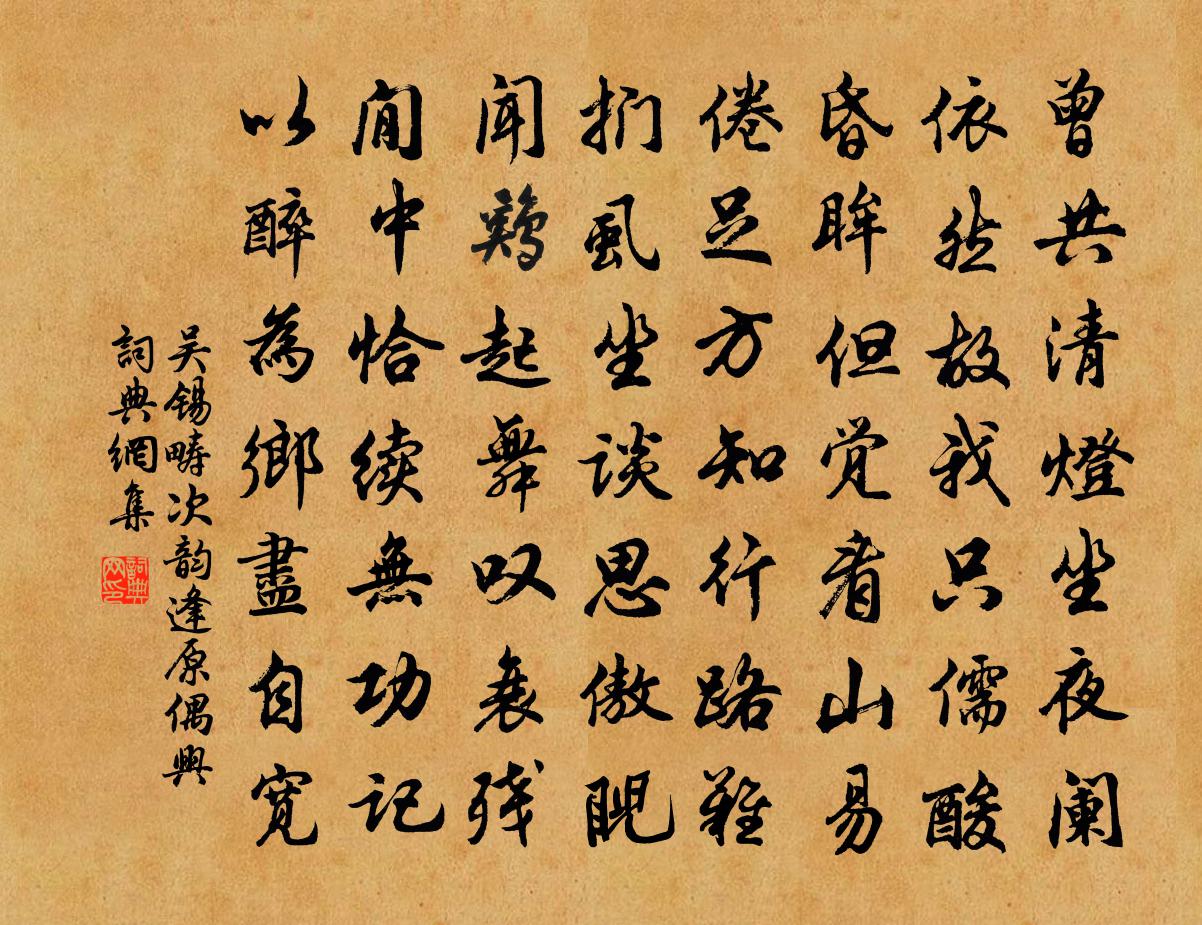 曾共清燈坐夜阑
依然故我只儒酸
昏眸但觉看山易
倦足方知行路难
捫虱坐谈思傲睨
闻鷄起舞叹衰残
閒中恰续無功记
以醉為鄉盡自宽
吴锡畴次韵逢原偶興
詞典網集
詞典网印